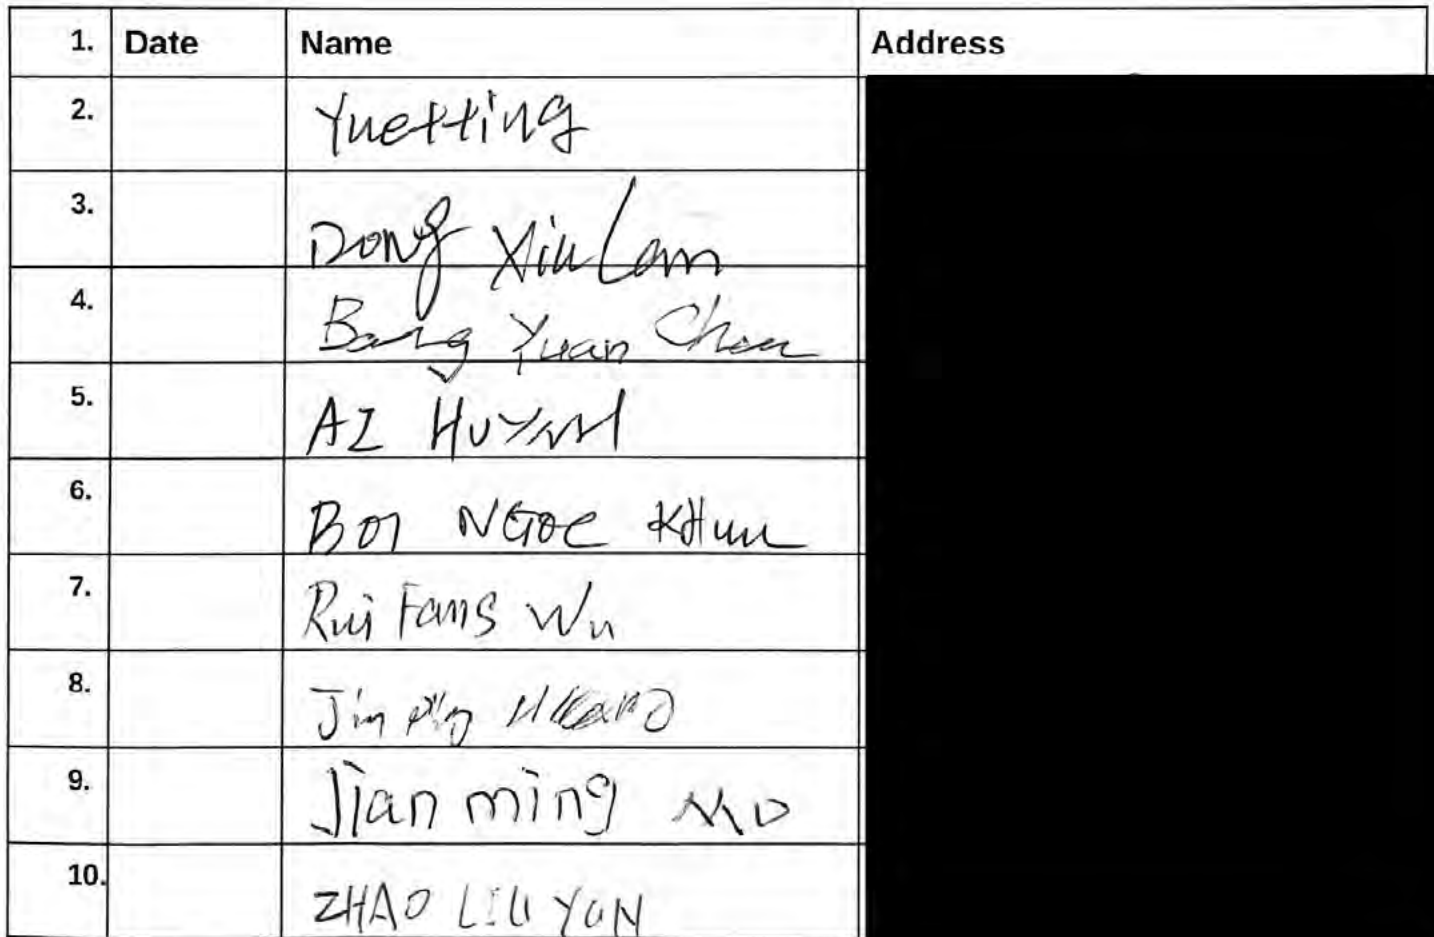 1. Date Name Address
2. Yuetting
3. Dong Xiu Lam
4. Bang Yuan Chen
5. AI HUYNH
6. BOI NGOC KHUU
7. Rui Fang Wu
8. Jin Ping
9. Jian ming
10. ZHAO YUN